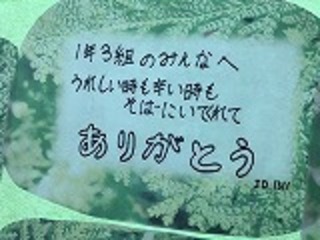 1年3組のみんなへ
うれしい時も辛い時も
そばにいてくれて
ありがとう